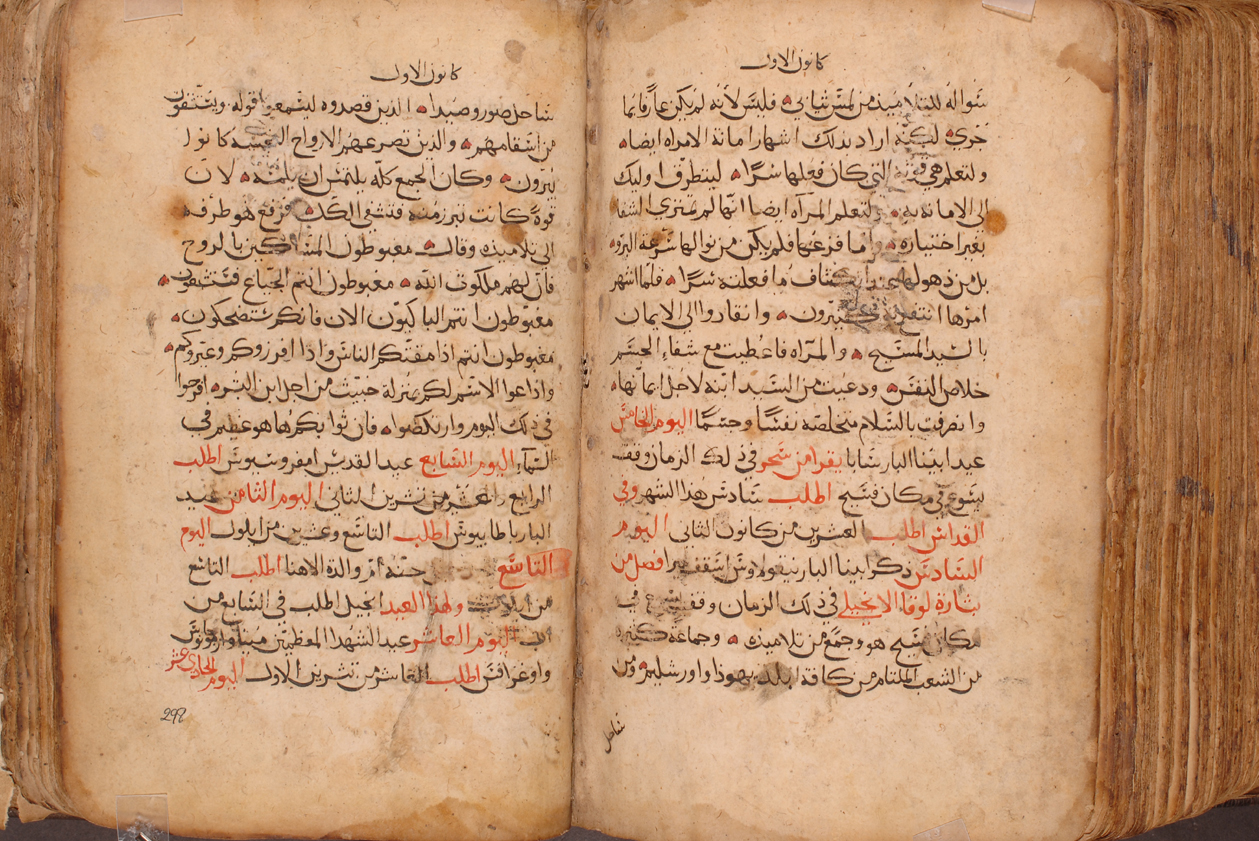 كانون الاول
سواله للتلاميذ من لمس ثيابي فليس لأنه لم يكن عارفا بما
جرى لكنه اراد بذلك اشهار امانة الامراه ايضا
ولتعلم هي التي كان فعلها سرا ليتطرق اوليك
الى الامانه به ولتعلم المرآه ايضا انها لم تسترق الشفا
بغير اختياره واما فزعها فلم يكن من نوالها سرعة البروء
بل من ذهولها ما فعلته سرا فلما اشهر
امرها انتفع وانقادوا الى الايمان
بالسيد المسيح والمرآه فاعطيت مع شفاء الجسم
خلاص النفس ودعيت من السيد ابنه لاجل ايمانها
وانصرفت بالسلام متخلصه نفسًا وجسمًا اليوم الخامس
عيد ابينا البار سابا يقرا من سحر في ذلك الزمان وقف
يسوع في مكان فسيح اطلب سادس هذا الشهر وفي
القداس اطلب العشرين من كانون الثاني اليوم
السادس ذكر ابينا البار نيقولاوس اسقف ميرا فصل من
بشارة لوقا الانجيلي في ذلك الزمان وقف يسوع في
مكان فسيح هو وجمع من تلاميذه وجماعة كثيره
من الشعب الملتام من كافة بلد يهوذا واورشليم ومن
ساحل
كانون الاول
ساحل صور وصيدا الذين قصدوه ليسمعوا قوله ويستشفون
من اسقامهم والذين تصرعهم الارواح النجسه كانوا
يبرون وكان الجمع كله يلتمس ان يلمسه لان
قوة كانت تبرز منه فتشفي الكل فرفع هو طرفه
الى تلاميذه وقال مغبوطون المساكين بالروح
فان لهم ملكوت الله مغبوطون انتم الجياع فستشبعون
مغبوطون انتم الباكيون الان فانكم ستضحكون
مغبوطون انتم اذا مقتكم الناس واذا افرزوكم وعيروكم
واذاعوا الاسم لكم بمنزلة خبيث من اجل ابن البشر افرحوا
في ذلك اليوم وارتكضوا فان ثوابكم ها هو عظيم في
السماء اليوم السابع عيد القديس امفروسيوس اطلب
الرابع عشر من تشرين الثاني اليوم الثامن عيد
البار باطابيوس اطلب التاسع وعشرين من ايلول اليوم
التاسع حنه ام والدة الاهنا اطلب التاسع
من ايلول ولهذا العيد انجيل اطلب في السابع من
اب اليوم العاشر عيد الشهدا المعظمين مينا وارموجانس
واوغرافس اطلب العاشر من تشرين الاول اليوم الحادي عشر
298